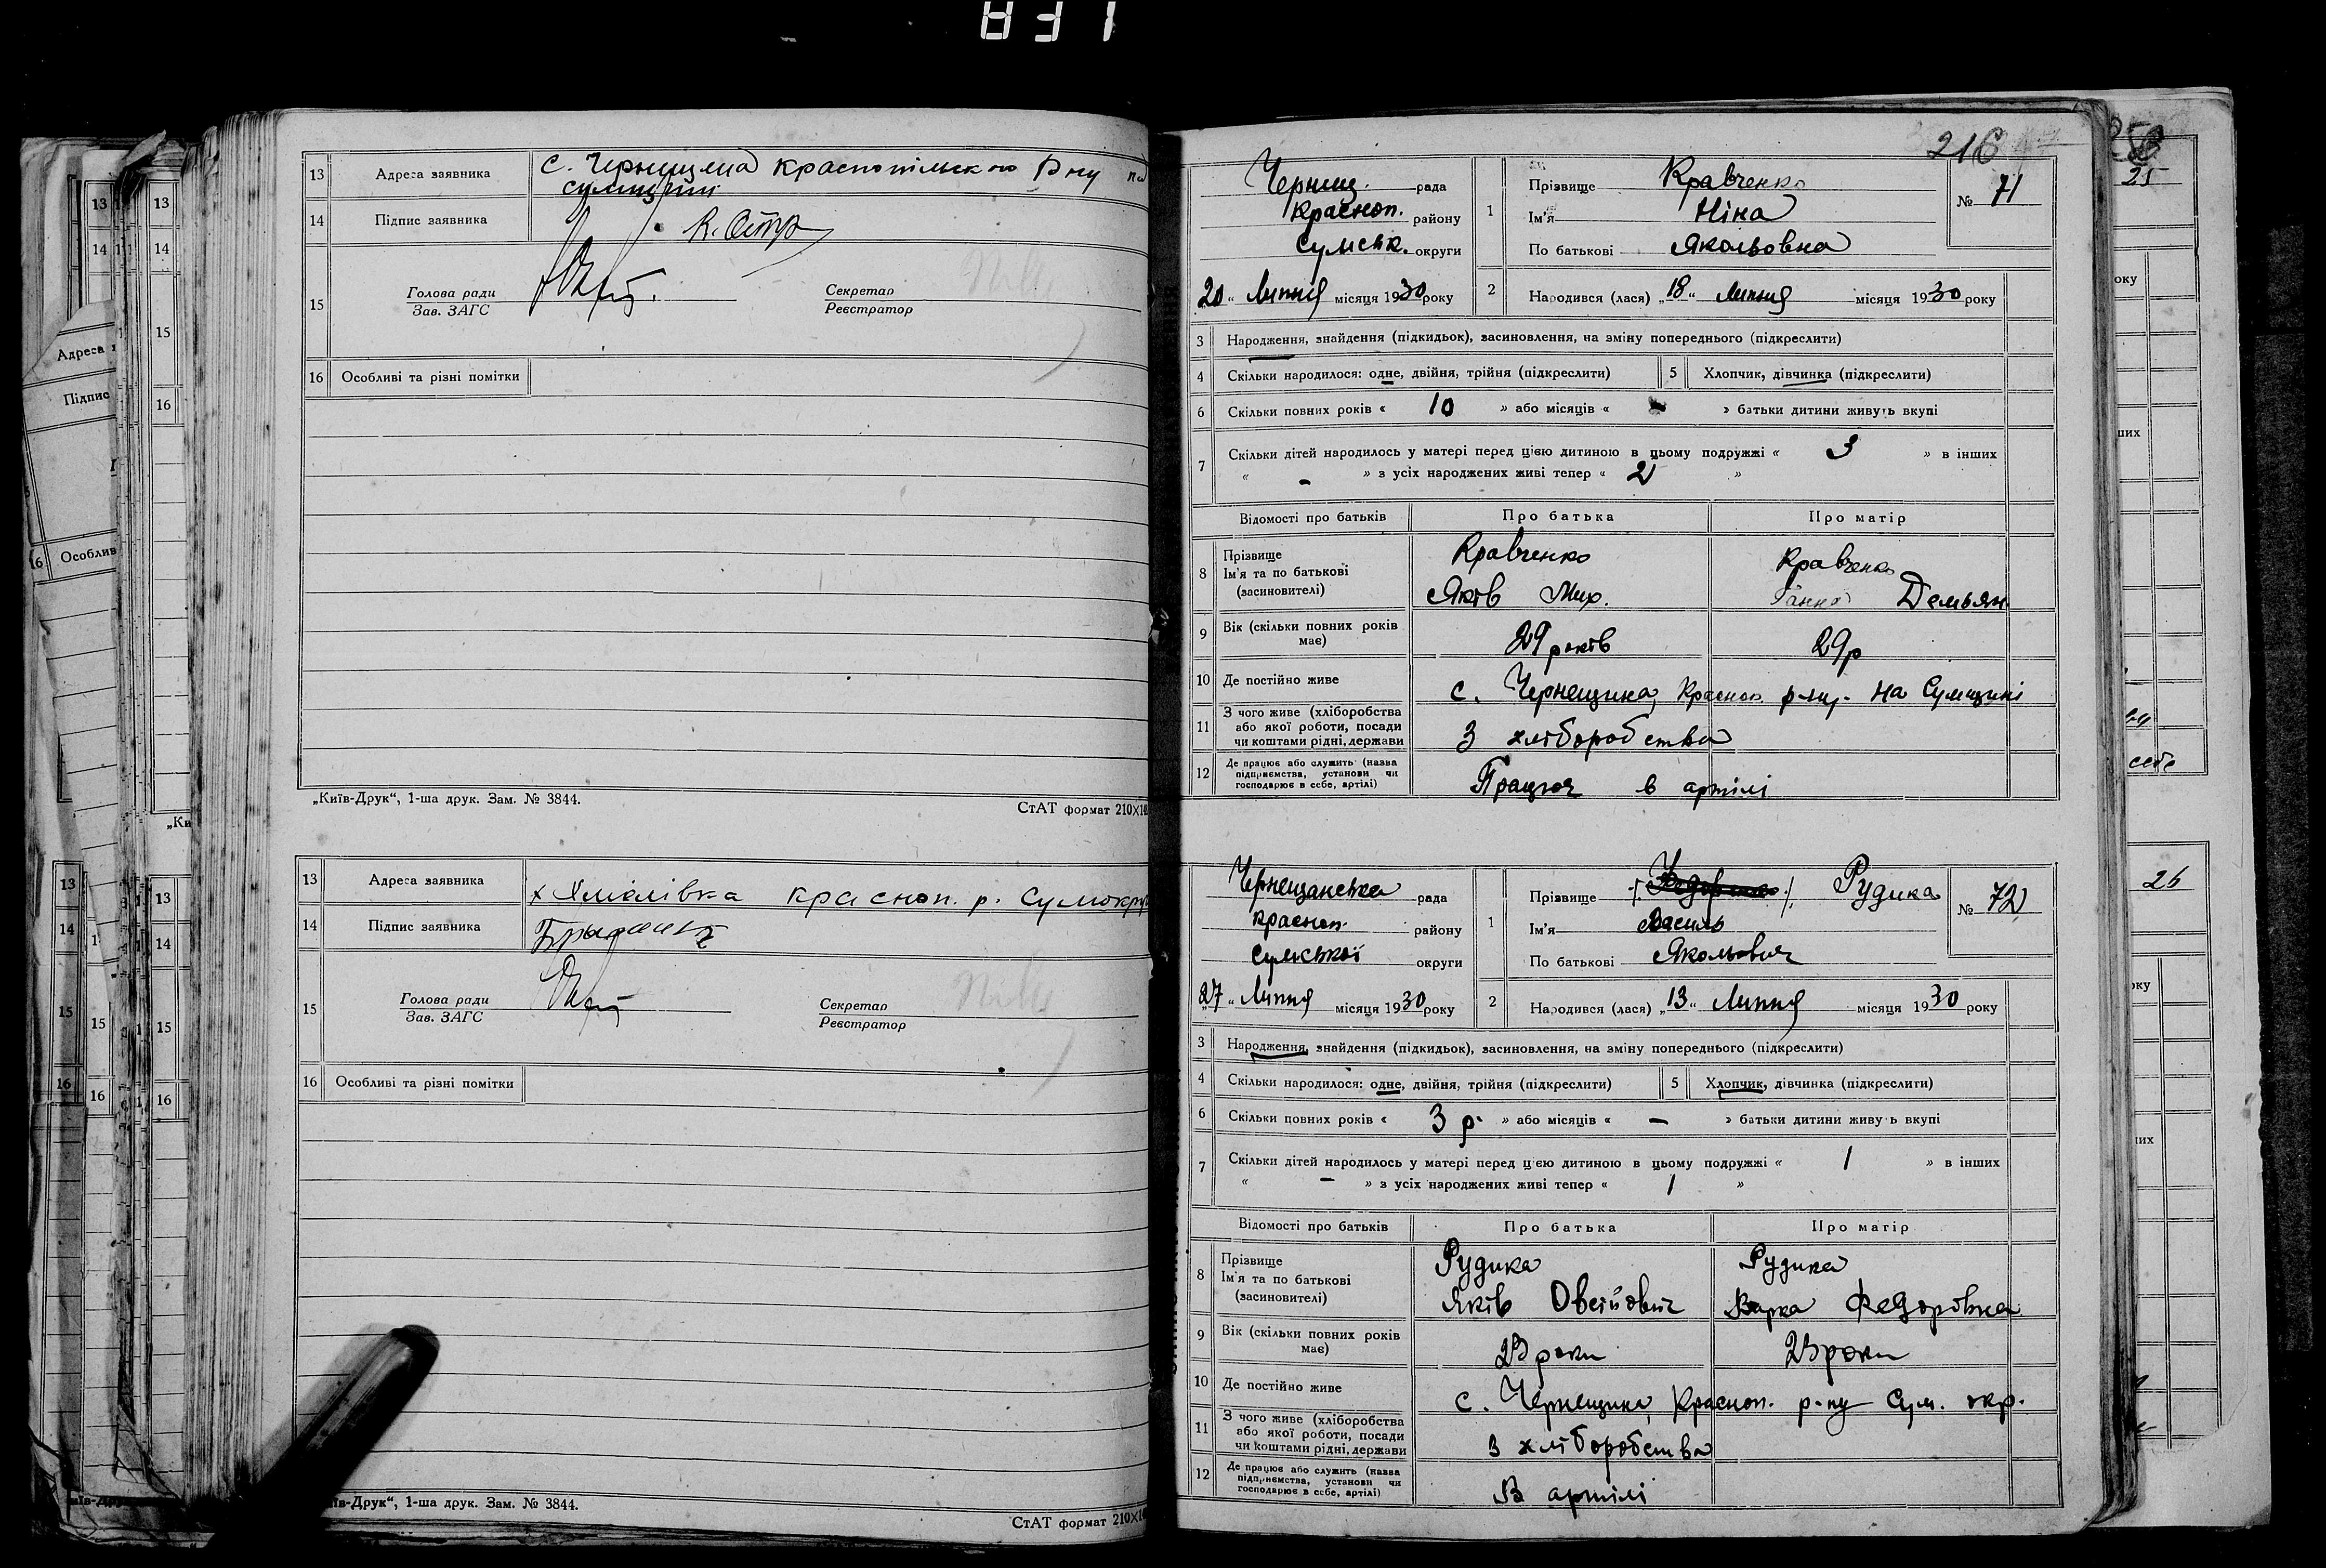 13 Адреса заявника с. Чернищена Краснопільского Рну на
Сумщині
14 Підпис заявника К. Остр
15 Голова ради Секретар
Зав. ЗАГС Реєстратор
16 Особливі та різні помітки
„Київ-Друк“, 1-ша друк. Зам. № 3844.
СтАТ формат 210×14
13 Адреса заявника х Хмілівка красноп. р. Сумокр
14 Підпис заявника
15 Голова ради Секретар
Зав. ЗАГС Реєстратор
16 Особливі та різні помітки
їв-Друк“, 1-ша друк. Зам. № 3844.
СтАТ формат 210×14
216
Чернещ. рада
Красноп. району
Сумськ. округи
20 „ Липня місяця 1930 року
1 Прізвище Кравченко
№ 71
Ім'я Ніна
По батькові Якольовна
2 Народився (лася) „ 18 “ Липня місяця 1930 року
3 Народження, знайдення (підкидьок), засиновлення, на зміну попереднього (підкреслити)
4 Скільки народилося: одне, двійня, трійня (підкреслити) 5 Хлопчик, дівчинка (підкреслити)
6 Скільки повних років « 10 » або місяців « » батьки дитини живуть вкупі
7 Скільки дітей народилось у матері перед цією дитиною в цьому подружжі « 3 » в інших
« - » з усіх народжених живі тепер « 2 »
Відомості про батьків Про батька Про матір
8 Прізвище Кравченко Кравченко
Ім'я та по батькові
(засиновителі) Яків Мих. Ганна Демьян
9 Вік (скільки повних років має) 29 років 29 р
10 Де постійно живе с. Чернещина, Красноп. р-ну. на Сумщині
11 З чого живе (хліборобства
або якої роботи, посади
чи коштами рідні, держави З хліборобства
12 Де працює або служить (назва
підприємства, установи чи
господарює в себе, артілі) Працює в артілі
Чернещанська рада
Красноп. району
Сумської округи
27 „ Липня місяця 1930 року
1 Прізвище Рудика
№ 72
Ім'я Василь
По батькові Якольович
2 Народився (лася) „ 13 “ Липня місяця 1930 року
3 Народження, знайдення (підкидьок), засиновлення, на зміну попереднього (підкреслити)
4 Скільки народилося: одне, двійня, трійня (підкреслити) 5 Хлопчик, дівчинка (підкреслити)
6 Скільки повних років « 3 р. » або місяців « — » батьки дитини живуть вкупі
7 Скільки дітей народилось у матері перед цією дитиною в цьому подружжі « 1 » в інших
« - » з усіх народжених живі тепер « 1 »
Відомості про батьків Про батька Про матір
8 Прізвище Рудика Рудика
Ім'я та по батькові
(засиновителі) Яків Овсійович Варка Федорівна
9 Вік (скільки повних років має) 23 роки 23 роки
10 Де постійно живе с. Чернещина, Красноп. р-ну Сум. окр.
11 З чого живе (хліборобства
або якої роботи, посади
чи коштами рідні, держави З хліборобства
12 Де працює або служить (назва
підприємства, установи чи
господарює в себе, артілі) В артілі